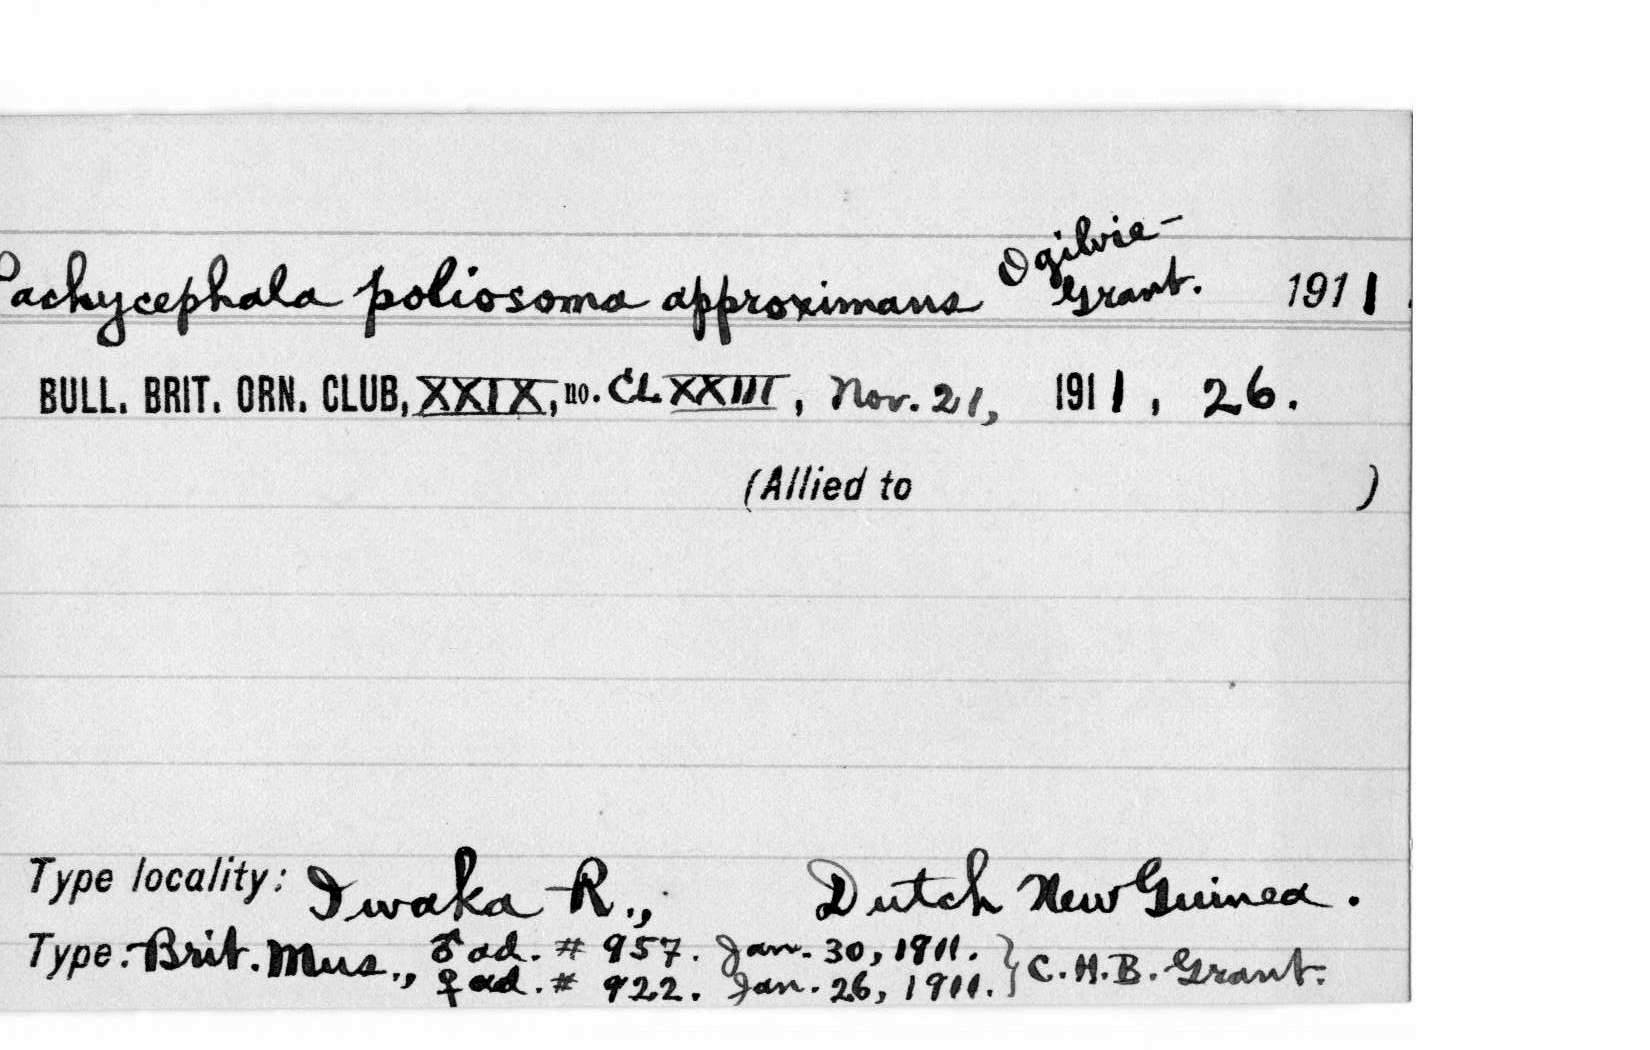 Pachycephala poliosoma approximans Ogilvie-Grant. 1911.
BULL. BRIT. ORN. CLUB, XXIX, no. CLXXIII, Nov. 21, 1911, 26.
(Allied to )
Type locality: Iwaka R., Dutch New Guinea.
Type: Brit. Mus., ♂ ad. # 957. Jan. 30, 1911. } C.H.B. Grant.
♀ ad. # 922. Jan. 26, 1911.